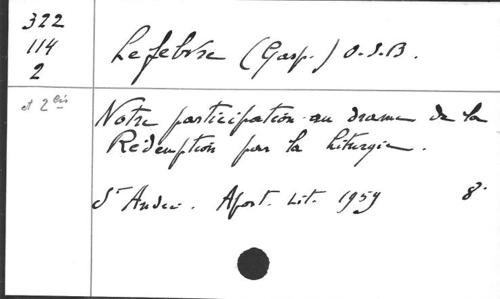 322
114
2
et 2bis
Lefebvre (Gasp.) O.S.B.
Notre participation au drame de la
Rédemption par la liturgie.
St André. Apost. Lit. 1959 8°